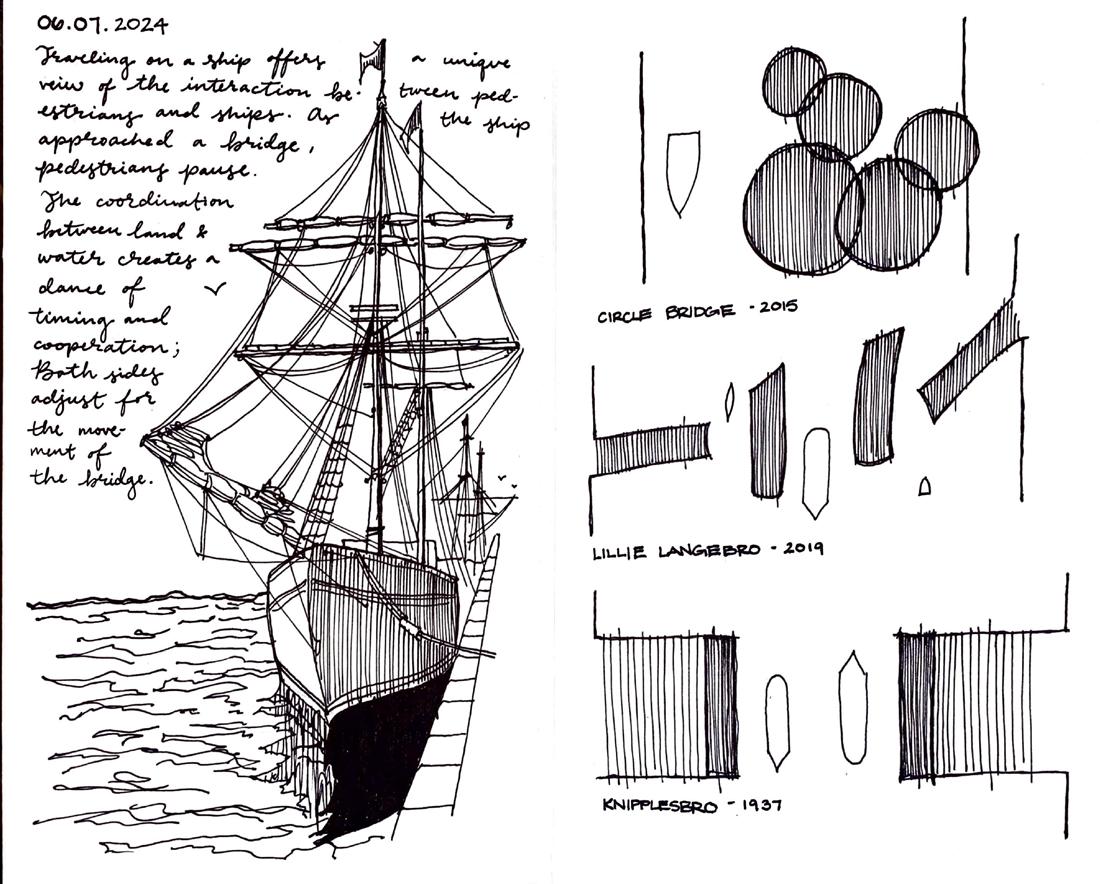 06.07.2024
Traveling on a ship offers a unique
veiw of the interaction be- tween ped-
estrians and ships. As the ship
approached a bridge,
pedestrians pause.
The coordination
between land &
water creates a
dance of
timing and
cooperation;
Both sides
adjust for
the move-
ment of
the bridge.
CIRCLE BRIDGE - 2015
LILLIE LANGEBRO - 2019
KNIPPLESBRO - 1937